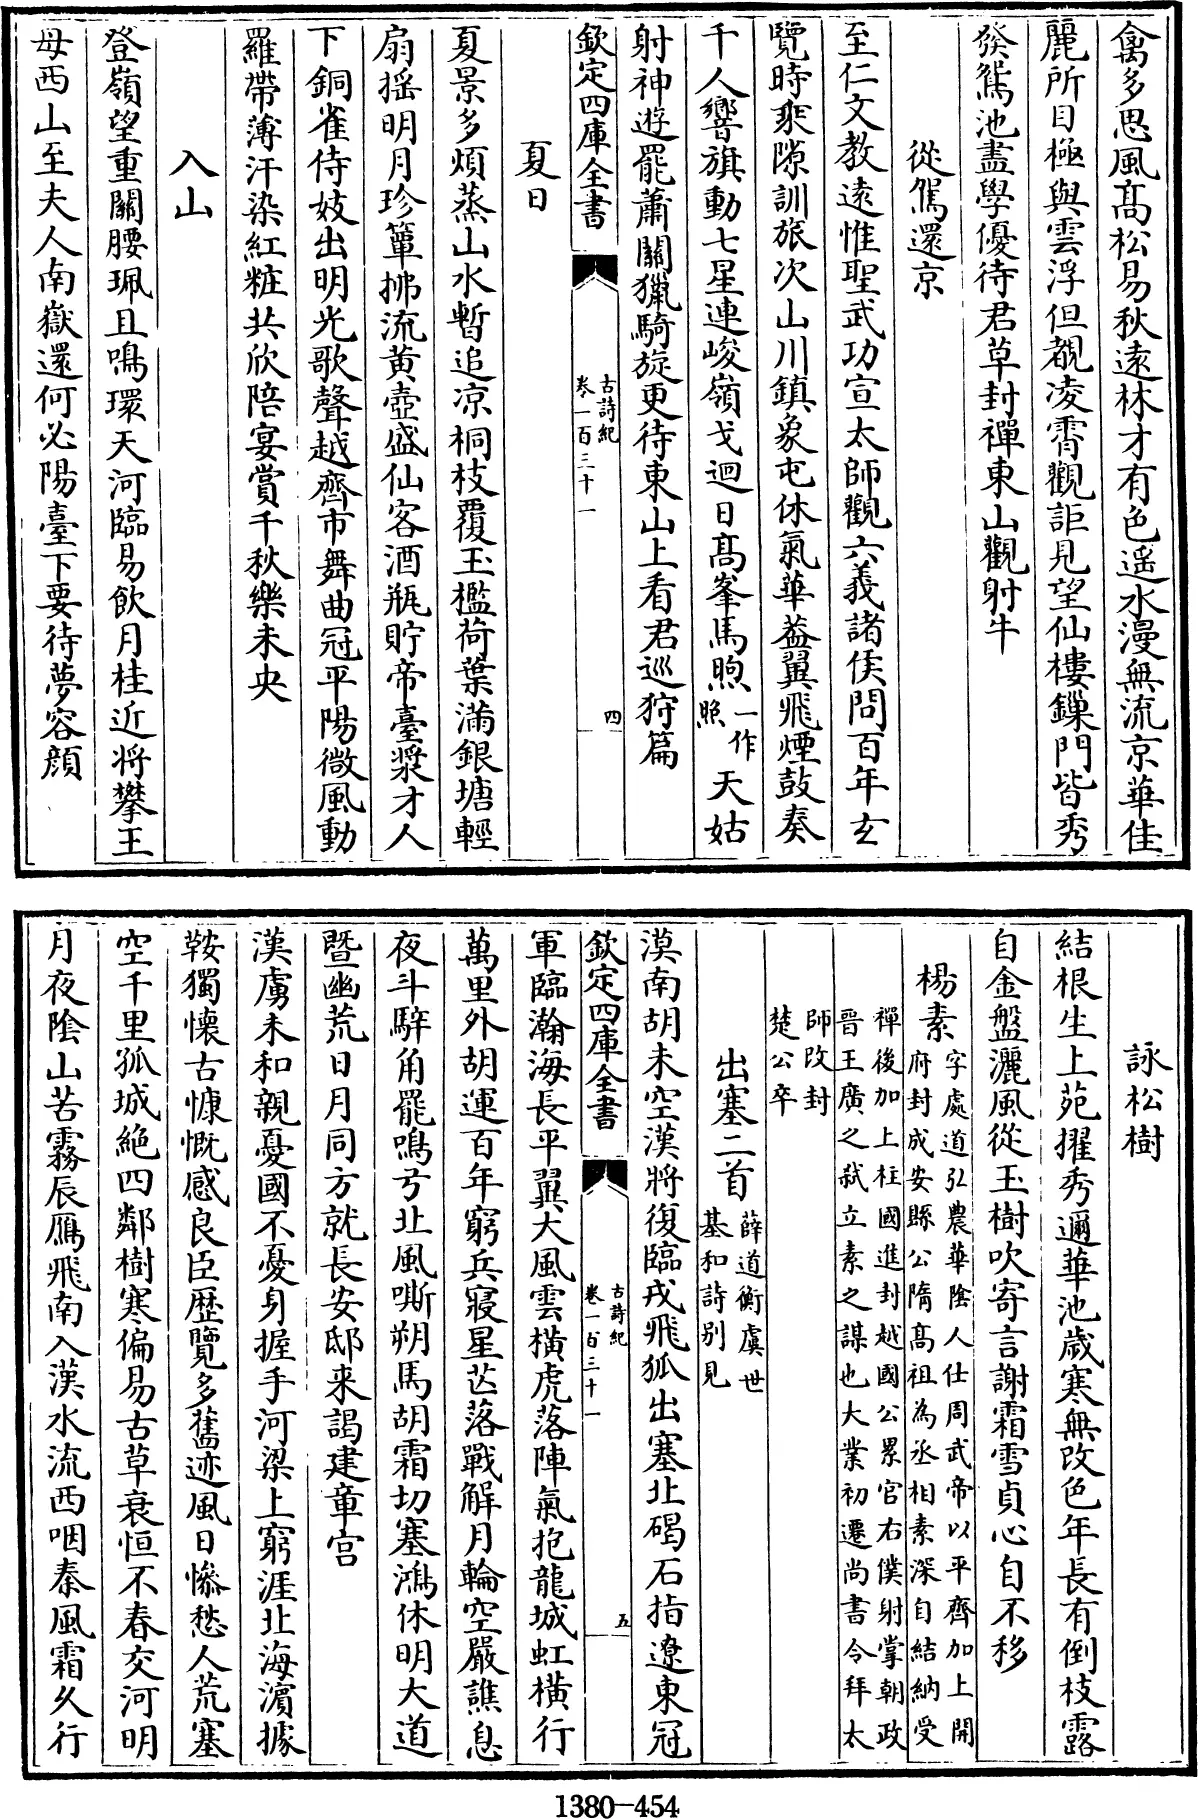 禽多思風髙松易秋遠林才有色遥水漫無流京華佳
麗所目極與雲浮但覩凌霄觀詎見望仙樓鏁門皆秀
發鴛池盡學優待君草封禪東山觀射牛
從駕還京
至仁文教遠惟聖武功宣太師觀六義諸侯問百年玄
覽時乘隙訓旅次山川鎮象屯休氣華葢翼飛煙鼓奏
千人響旗動七星連峻嶺戈迴日髙峯馬煦一作照天姑
射神遊罷蕭關獵騎旋更待東山上看君巡狩篇
欽定四庫全書
古詩紀
卷一百三十一
四
夏日
夏景多煩蒸山水暫追凉桐枝覆玉檻荷葉滿銀塘輕
扇揺明月珍簟拂流黄壺盛仙客酒瓶貯帝臺漿才人
下銅雀侍妓出明光歌聲越齊市舞曲冠平陽微風動
羅帶薄汗染紅粧共欣陪宴賞千秋樂未央
入山
登嶺望重關腰珮且鳴環天河臨易飲月桂近將攀王
母西山至夫人南嶽還何必陽臺下要待夢容顔
詠松樹
結根生上苑擢秀邇華池歲寒無改色年長有倒枝露
自金盤灑風從玉樹吹寄言謝霜雪貞心自不移
楊素字處道弘農華陰人仕周武帝以平齊加上開
府封成安縣公隋髙祖為丞相素深自結納受
禪後加上柱國進封越國公累官右僕射掌朝政
晉王廣之弑立素之謀也大業初遷尚書令拜太
師改封
楚公卒
出塞二首薛道衡虞世
基和詩别見
漠南胡未空漢將復臨戎飛狐出塞北碣石指遼東冠
欽定四庫全書
古詩紀
卷一百三十一
五
軍臨瀚海長平翼大風雲横虎落陣氣抱龍城虹横行
萬里外胡運百年窮兵寢星芒落戰解月輪空嚴鐎息
夜斗騂角罷鳴弓北風嘶朔馬胡霜切塞鴻休明大道
暨幽荒日月同方就長安邸来謁建章宫
漢虜未和親憂國不憂身握手河梁上窮涯北海濵據
鞍獨懷古慷慨感良臣歴覽多舊迹風日慘愁人荒塞
空千里孤城絶四鄰樹寒偏易古草衰恒不春交河明
月夜隂山苦霧辰鴈飛南入漢水流西咽秦風霜久行
1380-454